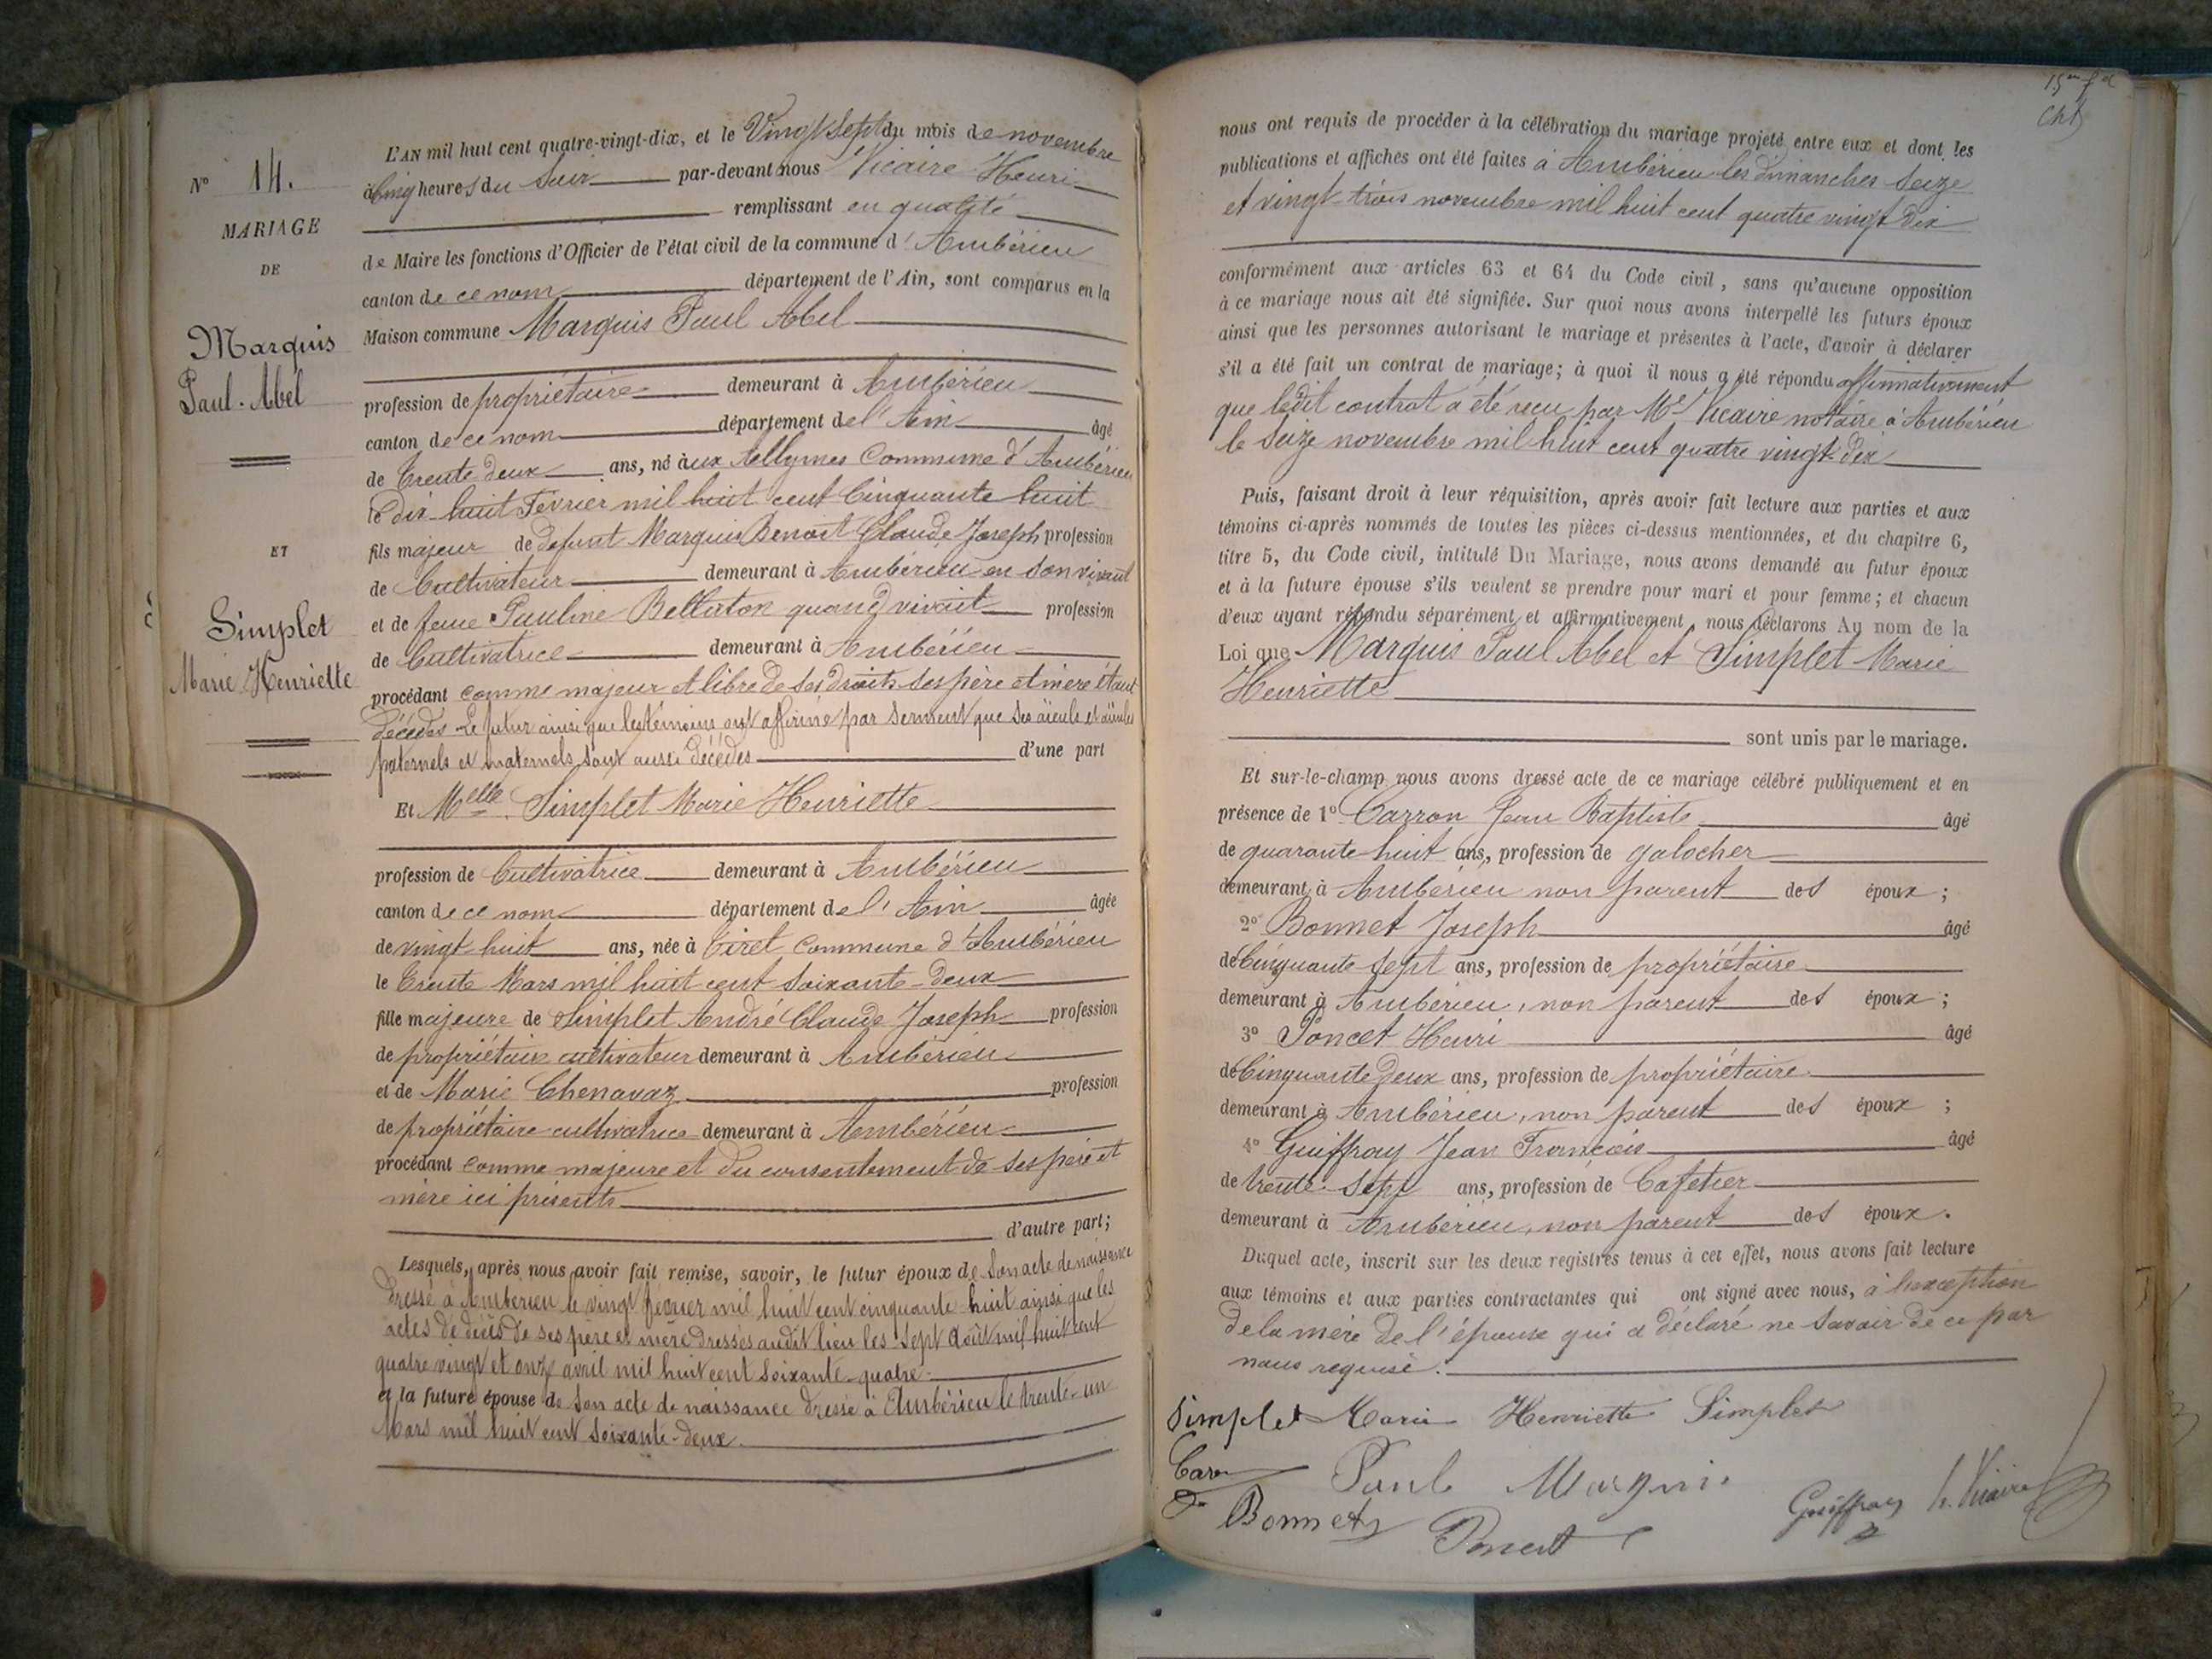 N° 14.
MARIAGE
DE
Marquis
Paul-Abel
ET
Simplet
Marie Henriette
L'AN mil huit cent quatre-vingt-dix, et le Vingt Sept du mois de novembre
à Cinq heures du Soir par-devant nous Vicaire Henri
remplissant en qualité
de Maire les fonctions d'Officier de l'état civil de la commune d'Ambérieu
canton de ce nom département de l'Ain, sont comparus en la
Maison commune Marquis Paul Abel
profession de propriétaire demeurant à Ambérieu
canton de ce nom département de l'Ain âgé
de Trente deux ans, né aux Allymes Commune d'Ambérieu
le dix-huit Février mil huit cent Cinquante huit
fils majeur de défunt Marquis Benoit Claude Joseph profession
de Cultivateur demeurant à Ambérieu en son vivant
et de feue Pauline Bellaton quand vivait profession
de Cultivatrice demeurant à Ambérieu
procédant comme majeur et libre de ses droits ses père et mère étant
décédés Le futur ainsi que les témoins ont affirmé par serment que ses aïeuls et aïeules
paternels et maternels sont aussi décédés d'une part
Et Melle Simplet Marie Henriette
profession de Cultivatrice demeurant à Ambérieu
canton de ce nom département de l'Ain âgée
de vingt huit ans, née à Tiret Commune d'Ambérieu
le Trente Mars mil huit cent soixante-deux
fille majeure de Simplet André Claude Joseph profession
de propriétaire cultivateur demeurant à Ambérieu
et de Marie Chenavaz profession
de propriétaire cultivatrice demeurant à Ambérieu
procédant comme majeure et du consentement de ses père et
mère ici présents
d'autre part;
Lesquels, après nous avoir fait remise, savoir, le futur époux de son acte de naissance
dressé à Ambérieu le vingt février mil huit cent cinquante-huit ainsi que les
actes de décès de ses père et mère dressés audit lieu les sept août mil huit cent
quatre vingt et onze avril mil huit cent soixante-quatre
et la future épouse de son acte de naissance dressé à Ambérieu le trente-un
Mars mil huit cent soixante-deux.
nous ont requis de procéder à la célébration du mariage projeté entre eux et dont les
publications et affiches ont été faites à Ambérieu les dimanches seize
et vingt-trois novembre mil huit cent quatre vingt dix
conformément aux articles 63 et 64 du Code civil, sans qu'aucune opposition
à ce mariage nous ait été signifiée. Sur quoi nous avons interpellé les futurs époux
ainsi que les personnes autorisant le mariage et présentes à l'acte, d'avoir à déclarer
s'il a été fait un contrat de mariage; à quoi il nous a été répondu affirmativement
que ledit contrat a été reçu par Me Vicaire notaire à Ambérieu
le seize novembre mil huit cent quatre vingt-dix
Puis, faisant droit à leur réquisition, après avoir fait lecture aux parties et aux
témoins ci-après nommés de toutes les pièces ci-dessus mentionnées, et du chapitre 6,
titre 5, du Code civil, intitulé Du Mariage, nous avons demandé au futur époux
et à la future épouse s'ils veulent se prendre pour mari et pour femme; et chacun
d'eux ayant répondu séparément et affirmativement, nous déclarons Au nom de la
Loi que Marquis Paul Abel et Simplet Marie
Henriette
sont unis par le mariage.
Et sur-le-champ nous avons dressé acte de ce mariage célébré publiquement et en
présence de 1° Carron Jean Baptiste âgé
de quarante-huit ans, profession de galocher
demeurant à Ambérieu non parent des époux;
2° Bonnet Joseph âgé
de Cinquante sept ans, profession de propriétaire
demeurant à Ambérieu, non parent des époux;
3° Poncet Henri âgé
de Cinquante deux ans, profession de propriétaire
demeurant à Ambérieu, non parent des époux;
4° Guiffray Jean François âgé
de trente-sept ans, profession de Cafetier
demeurant à Ambérieu, non parent des époux.
Duquel acte, inscrit sur les deux registres tenus à cet effet, nous avons fait lecture
aux témoins et aux parties contractantes qui ont signé avec nous, à l'exception
de la mère de l'épouse qui a déclaré ne savoir de ce par
nous requise.
Simplet Marie Henriette Simplet
Caron
Paul Marquis
Bonnet
Poncet
Guiffray
h. Vicaire